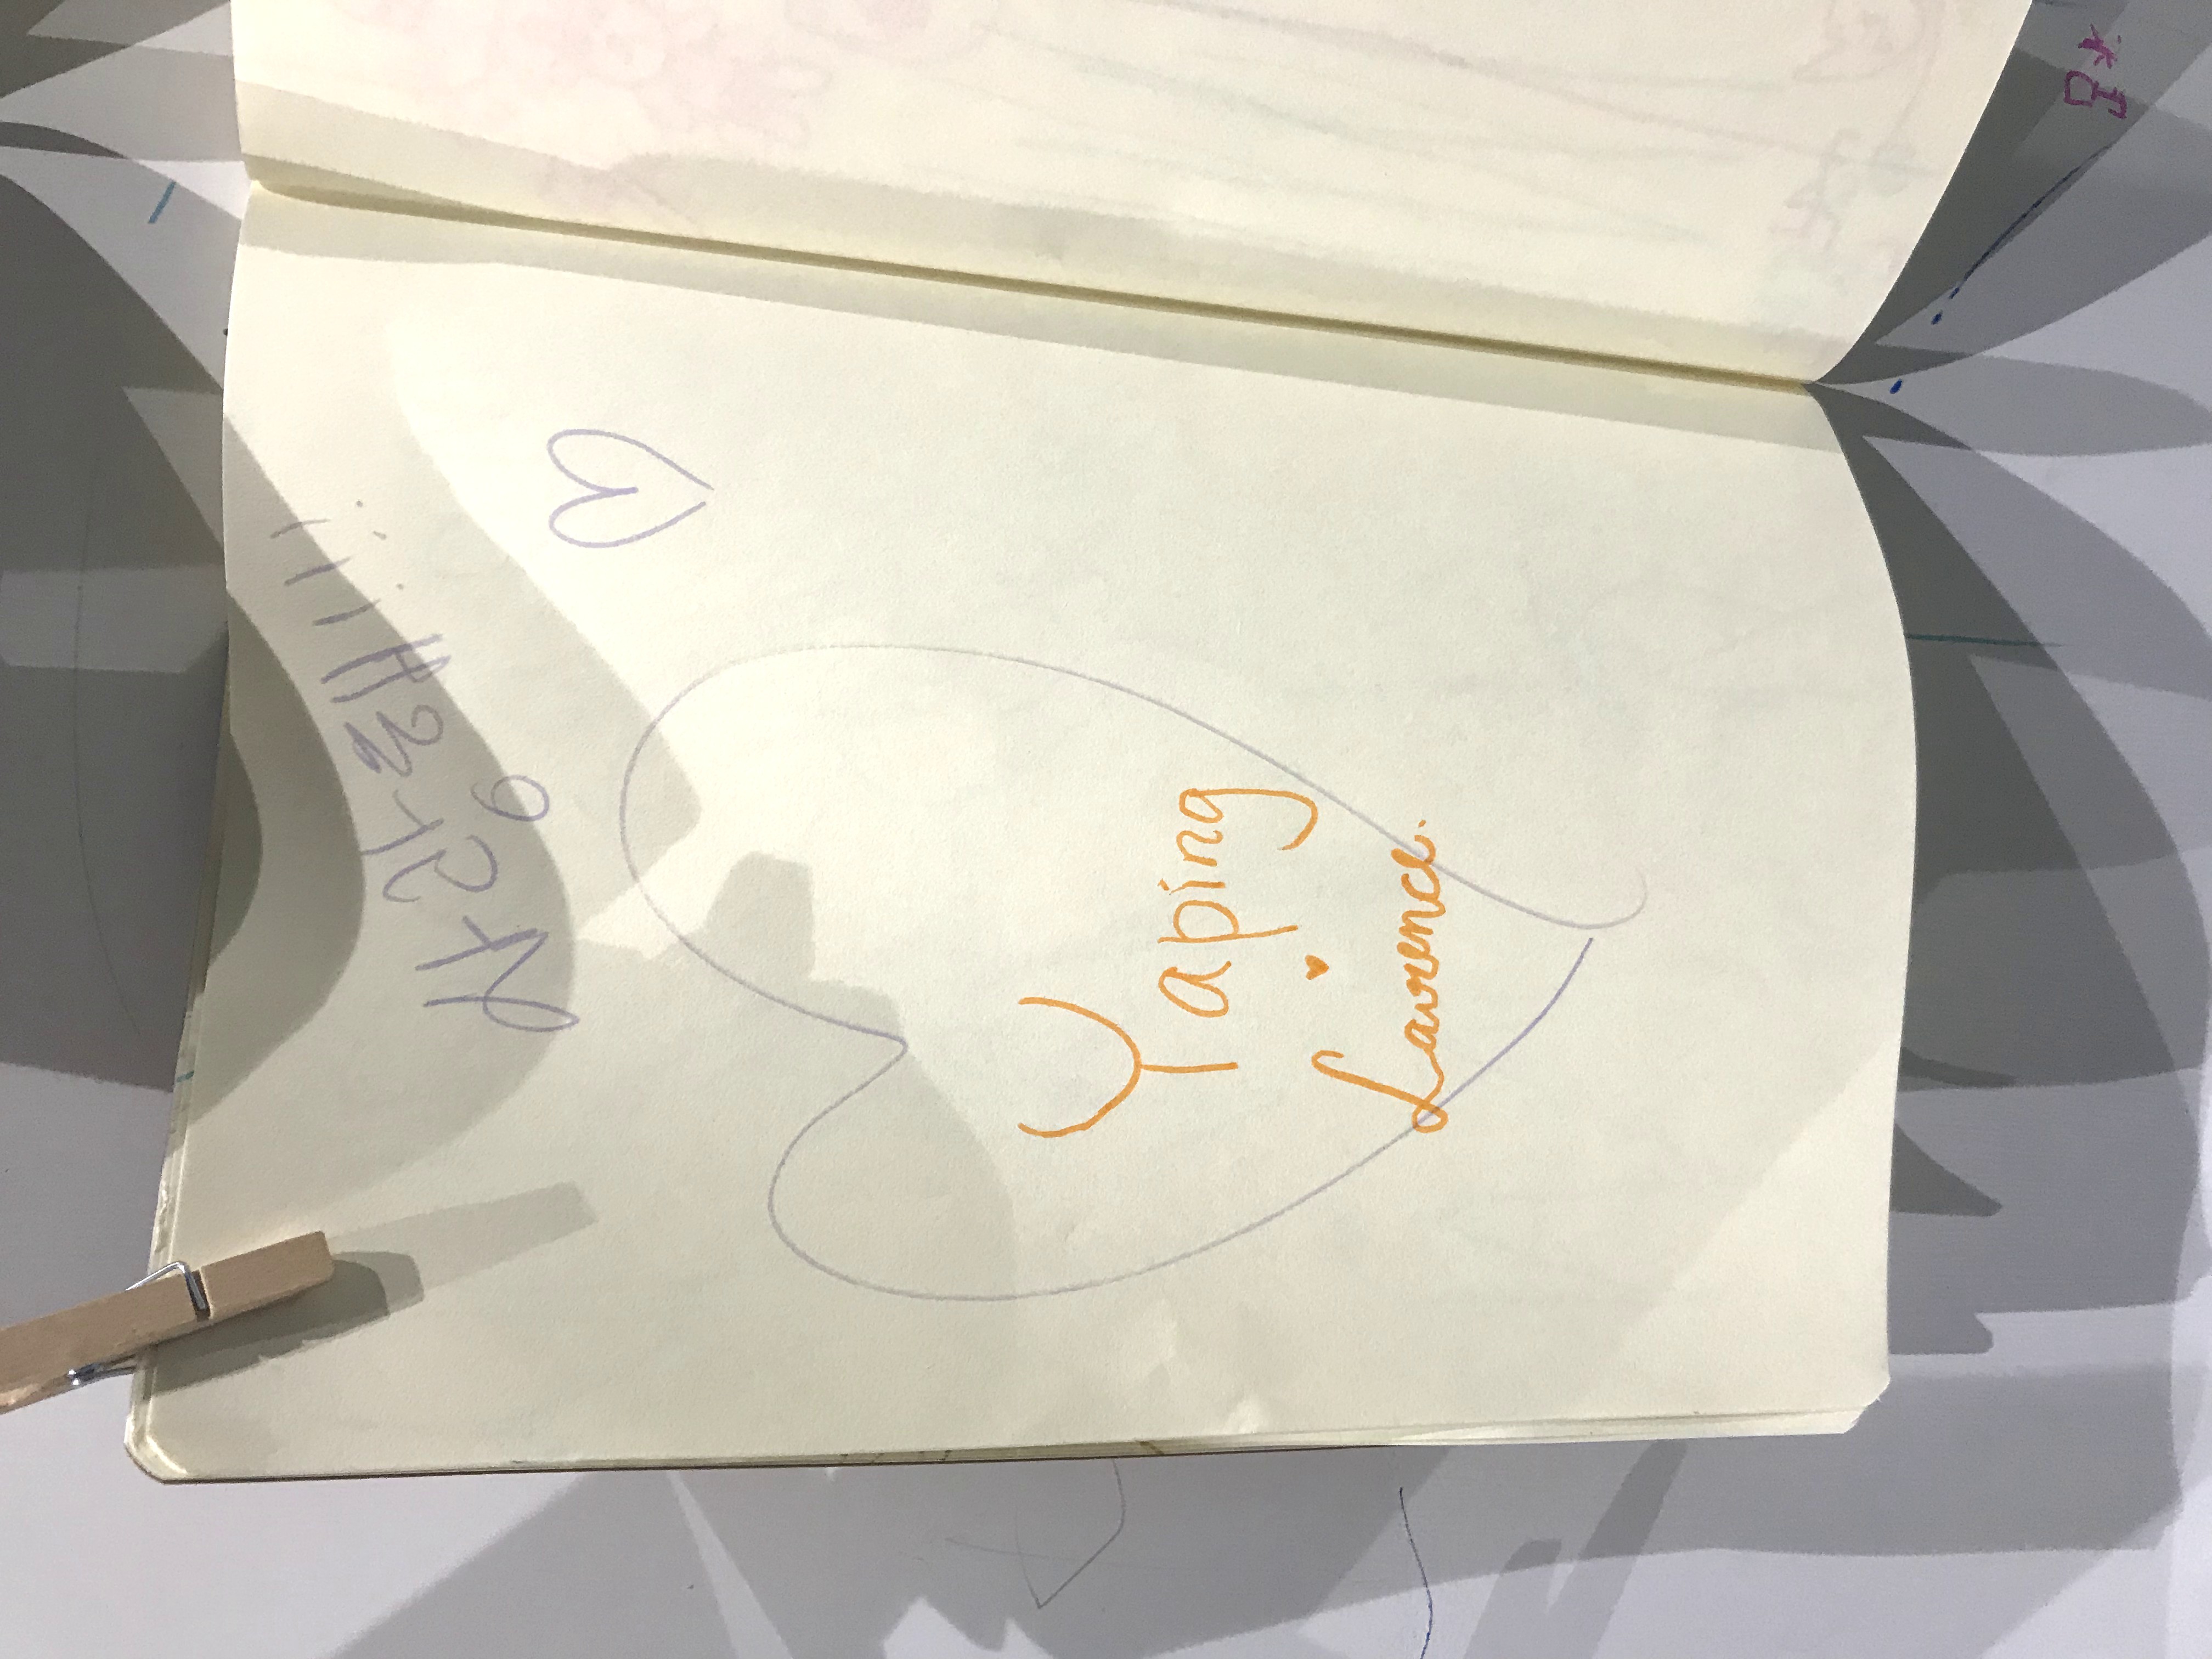 사랑해!!!
Yaping
Laurence.